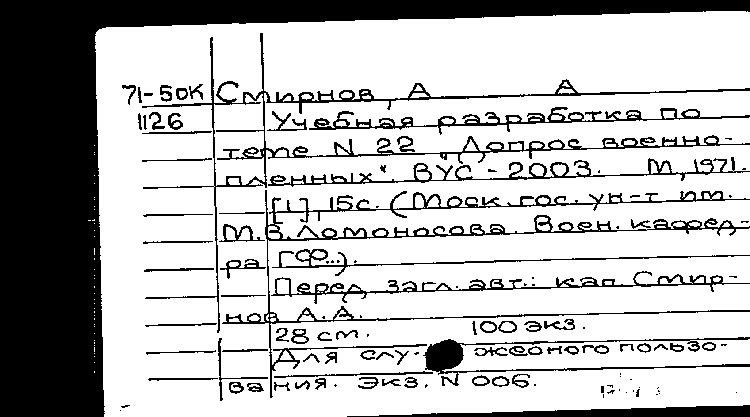 71-5ДК Смирнов, А А
1126 Учебная разработка по
теме N 22 „Допрос военно-
пленных". ВУС - 2003. М, 1971.
[1], 15с. (Моск. гос. ун-т им.
М.В. Ломоносова. Воен. кафед-
ра ГФ...).
Перед загл. авт.: кап. Смир-
нов А.А.
28 см. 100 экз.
Для слу- жебного пользо-
вания. Экз. N 006.